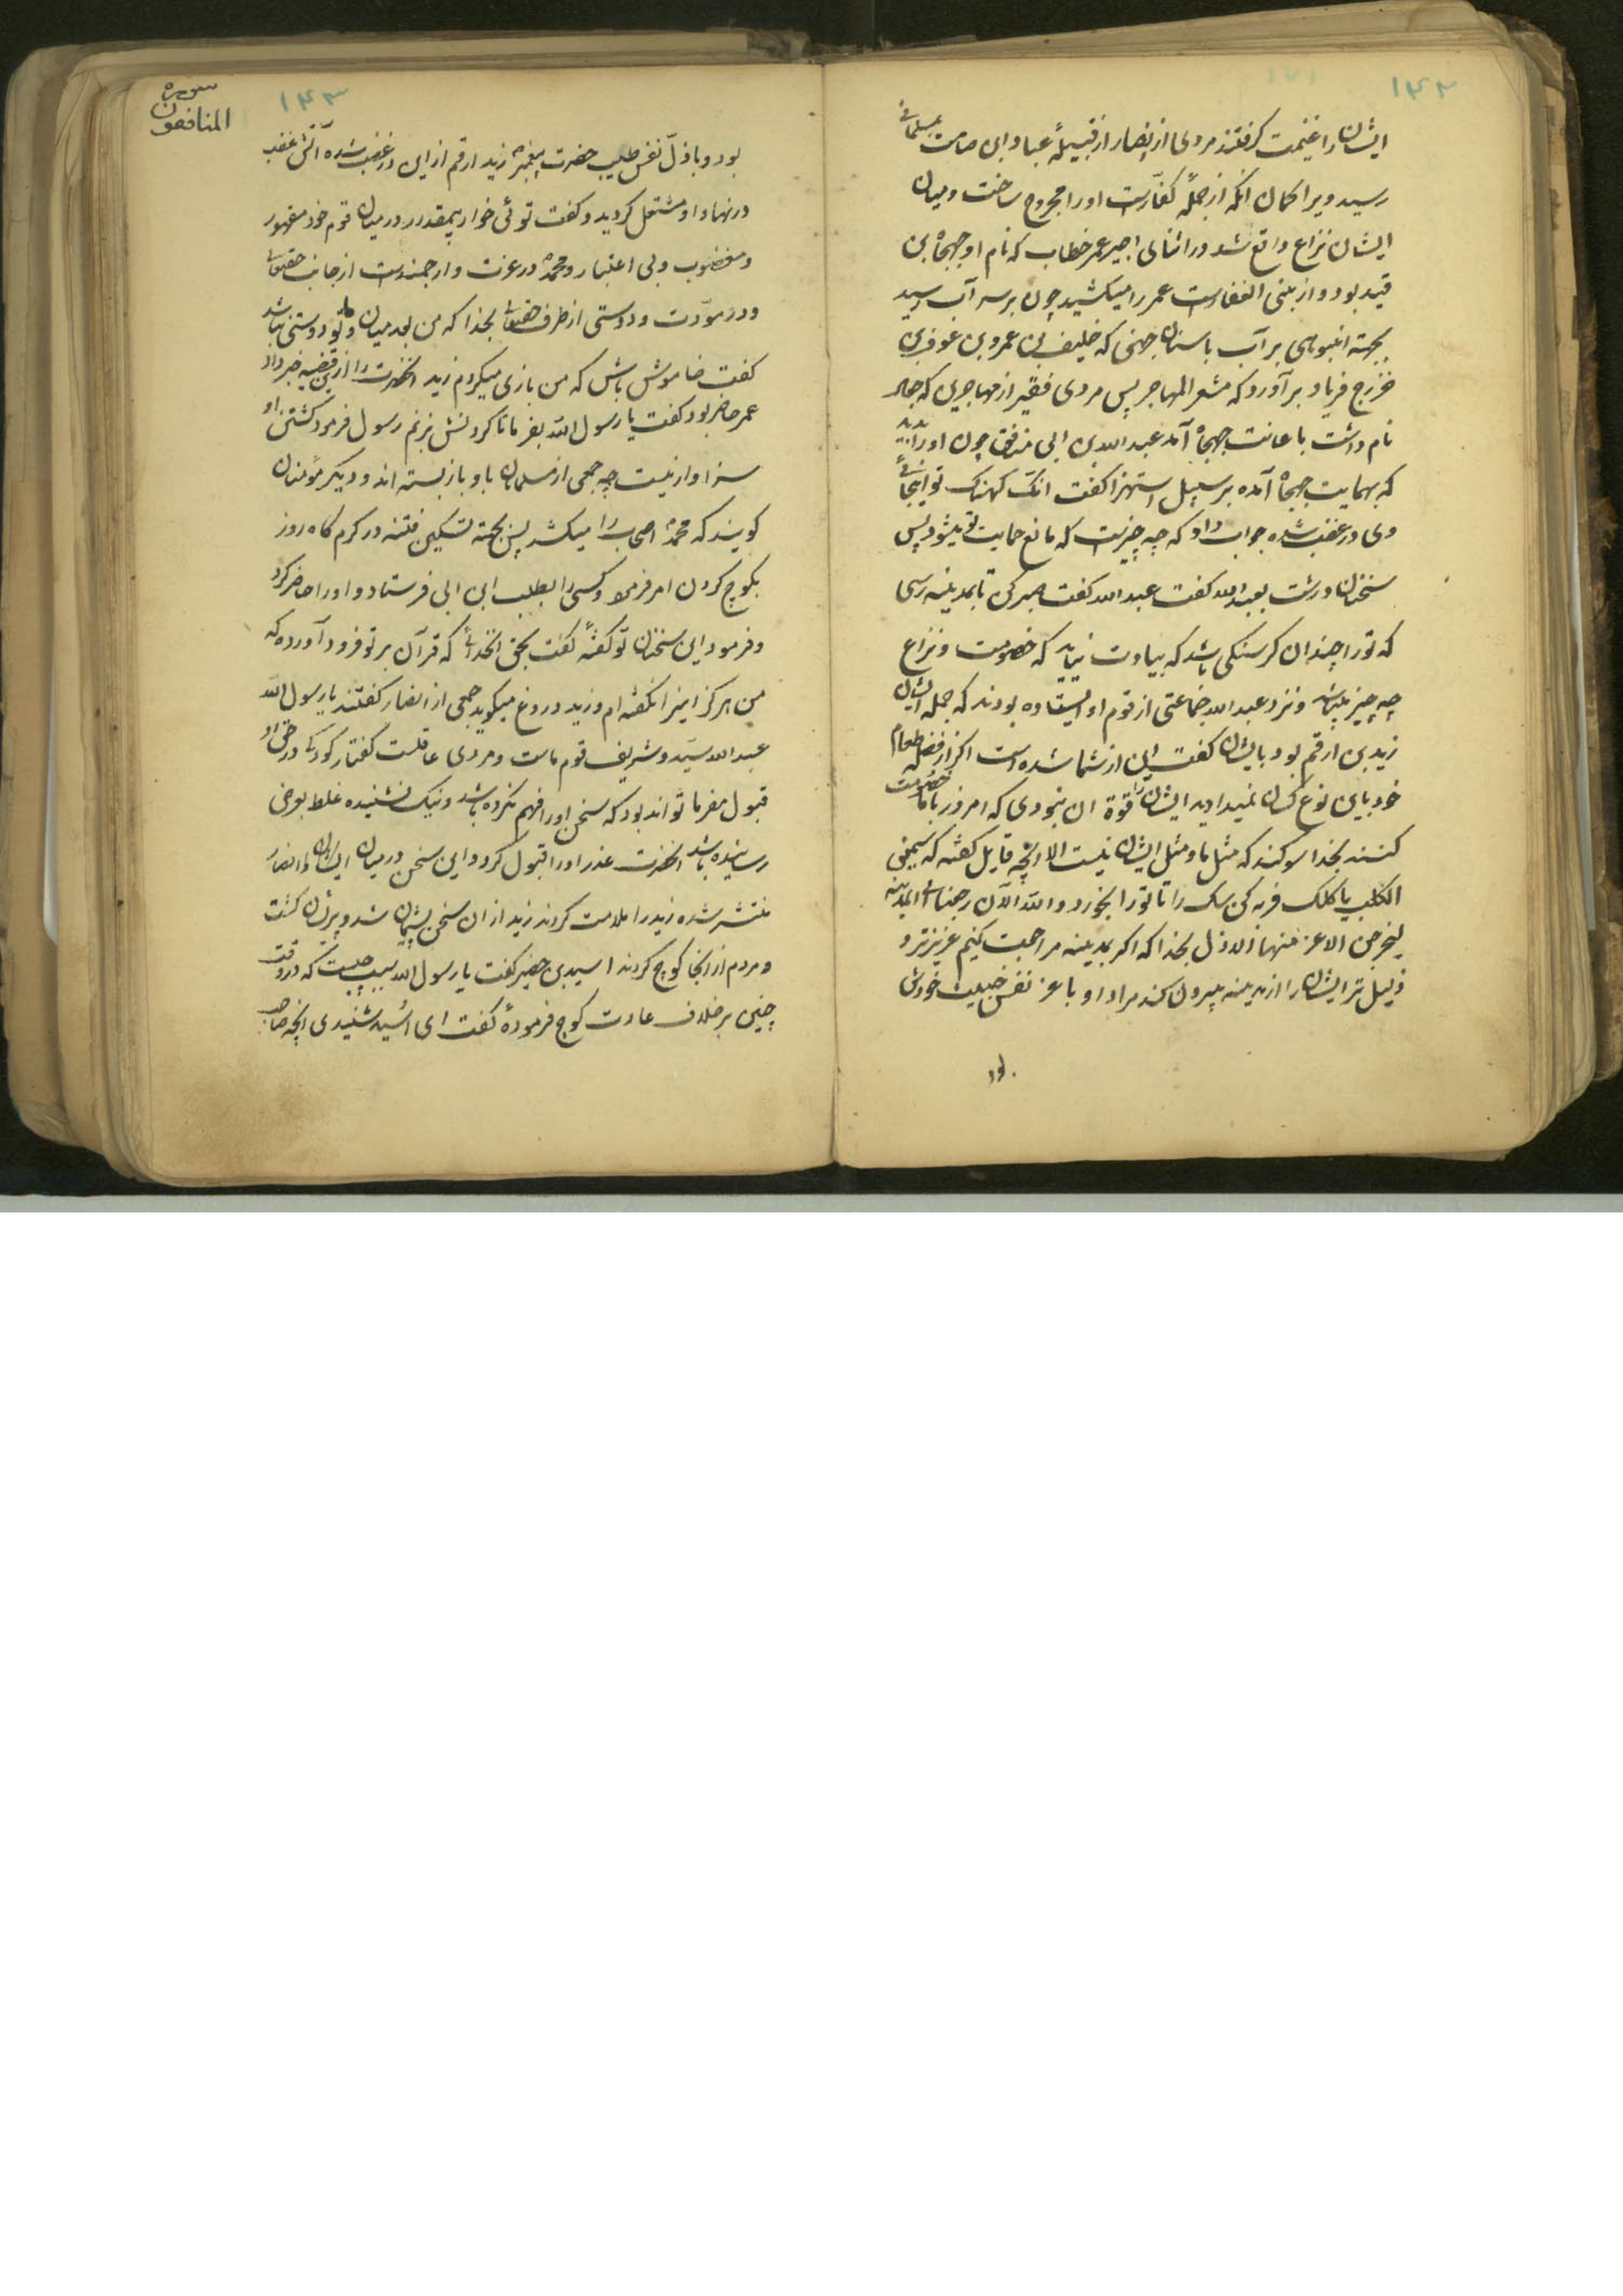 ۱۴۲
ایشان را غنیمت کرفتند مردی از انصار از قبیلهٔ عباد ابن صامت بمسلمانی
رسید ویرا کمان انکه از جملهٔ کفّارست اورا مجروح ساخت ومیان
ایشان نزاع واقع شد در اثنای اجیر عمر خطاب که نام او جهجاه بن
قید بود و از بنی الغفارست عمر را میکشید چون بر سر آب رسید
بجهته انبوهی بر آب باسنان جهنی که خلیف بن عمرو بن عوف بن
خزرج فریاد برآورد که مشعر المهاجر پس مردی فقیر از مهاجرین که جعال
نام داشت باعانت جهجاه آمد عبد الله بن ابی منافق چون اورا بدید
که بهمایت جهجاه آمده بر سبیل استهزا کفت انک کهنک تو اینجائی
وی در غضب شده جواب داد که چه چیزیست که مانع حمایت تو میشود پس
سخنان درشت بعبد الله کفت عبد الله کفت صبر کن تا بمدینه رسی
که تورا چندان کرسنکی باشد که بیادت نیاید که خصومت و نزاع
چه چیز باشد ونزد عبد الله جماعتی از قوم او ایستاده بودند که جمله ایشان
زید بن ارقم بود بایشان کفت این از شما شده است اکر از فضلهٔ طعام
خود باین نوع کسان نمیدادید ایشان را قوة ان نبودی که امروز باما خصومت
کنند بخدا سوکند که مثل ما ومثل ایشان نیست الا انچه قایل کفته که سیمنی
الکلب یاکلک فربه کن سک را تا تورا بخورد والله لان رجعنا الی المدینه
لیخرجن الاعز منها الاذل بخدا که اکر بمدینه مراجعت کنیم عزیزتر و
ذلیل تر ایشان را از مدینه بیرون کند مراد او باعز نفس خبیث خودش
بود
سوره
المنافقون
۱۴۳
بود وباذلّ نفس طیب حضرت پیغمبر زید ارقم از این در غضب شده آتش غضب
در نهاد او مشتعل کردید وکفت توئی خوار بیمقدر در میان قوم خود مقهور
ومغضوب وبی اعتبار ومحمّد در عزت وارجمندیست از جانب حقتعالی
ودر مودّت ودوستی از طرف حقتعالی بخدا که من بعد میان ما وتو دوستی نباشد
کفت خاموش باش که من بازی میکردم زید انحضرت را از این قضیه خبر داد
عمر حاضر بود کفت یا رسول الله بفرما تا کردنش بزنم رسول فرمود کشتن او
سزاوار نیست چه جمعی از مسلمانان باو بازبسته اند ودیکر مؤمنان
کویند که محمّد اصحاب را میکشد پس بجهته تسکین فتنه در کرم کاه روز
بکوچ کردن امر فرمود وکسی را بطلب ابن ابی فرستاد و اورا حاضر کرد
وفرمود این سخنان تو کفتهٔ کفت بحق انخدائی که قرآن بر تو فرود آورده که
من هرکز اینرا نکفته ام وزید دروغ میکوید جمعی از انصار کفتند یا رسول الله
عبد الله سیّد وشریف قوم ماست ومردی عاقلست کفتار کودکی در حق او
قبول مفرما تواند بود که سخن اورا فهم نکرده باشد ونیک نشنیده غلط بعرض
رسانیده باشد انحضرت عذر اورا قبول کرد و این سخن در میان ایشان وانصار
منتشر شده زید را ملامت کردند زید از ان سخن پشیمان شد و پریشان کشت
ومردم از انجا کوچ کردند اسید بن حضیر کفت یا رسول الله سبب چیست که در وقت
چنین برخلاف عادت کوچ فرمودهٔ کفت ای اُسید نشنیدی انچه صاحب